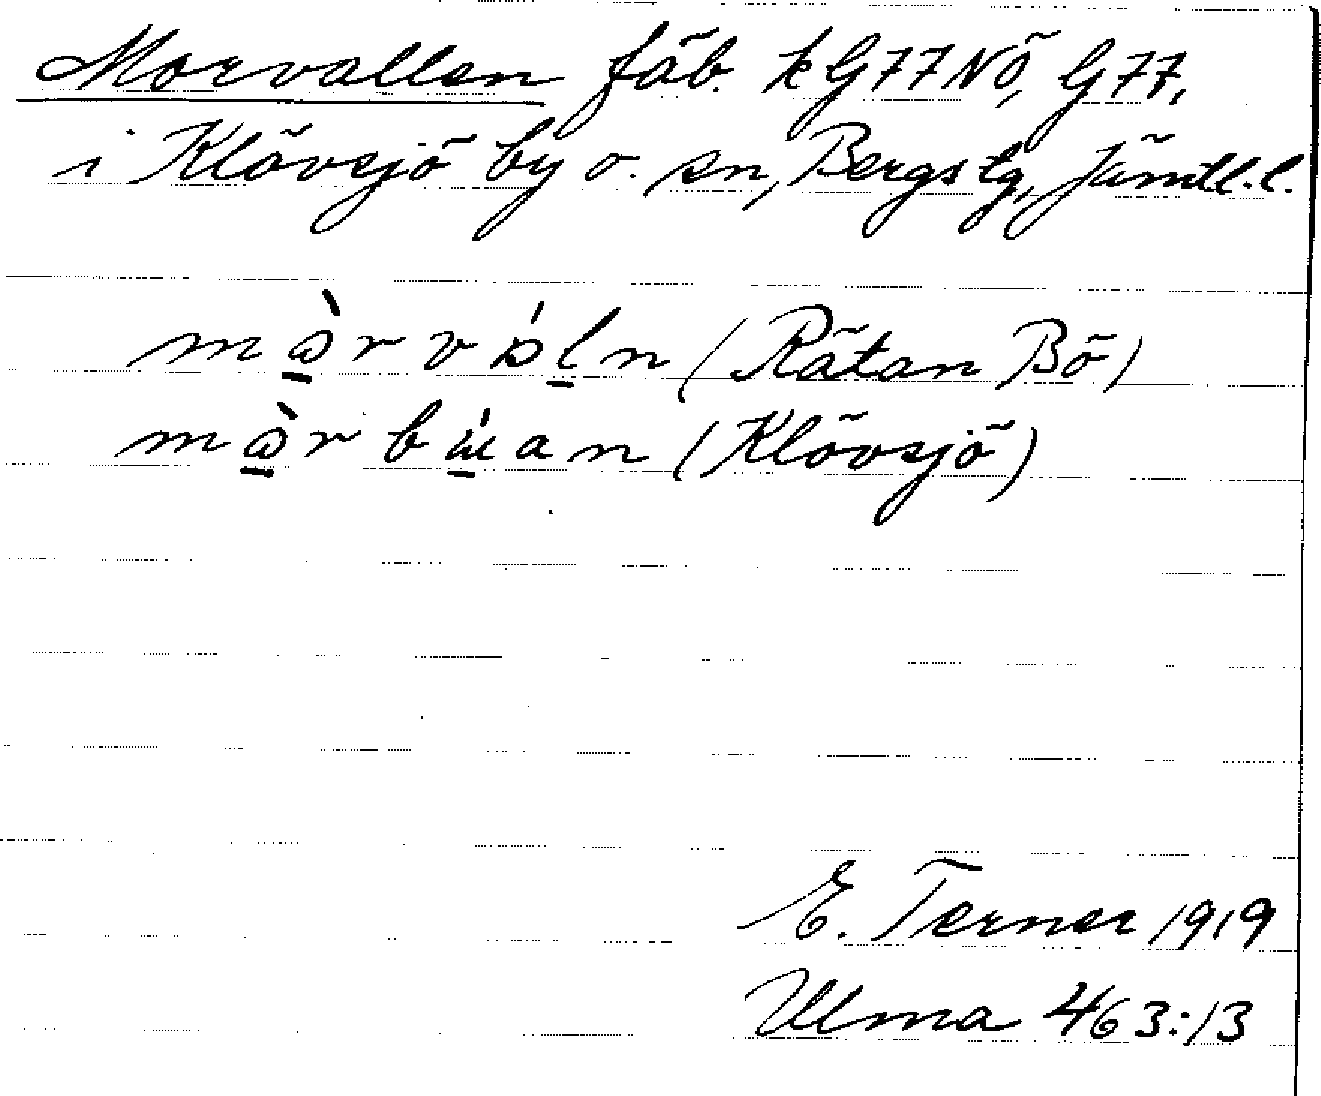 Morvallen fäb. kG77NÖ, G77,
i Klövsjö by o. sn, Bergs tg, Jämtl. l.
mɷ̱̀rvɒ́ḻn (Rätan Bö)
mɷ̱̀rbɯ̱́an (Klövsjö)
E. Ternes 1919
Ulma 463:13